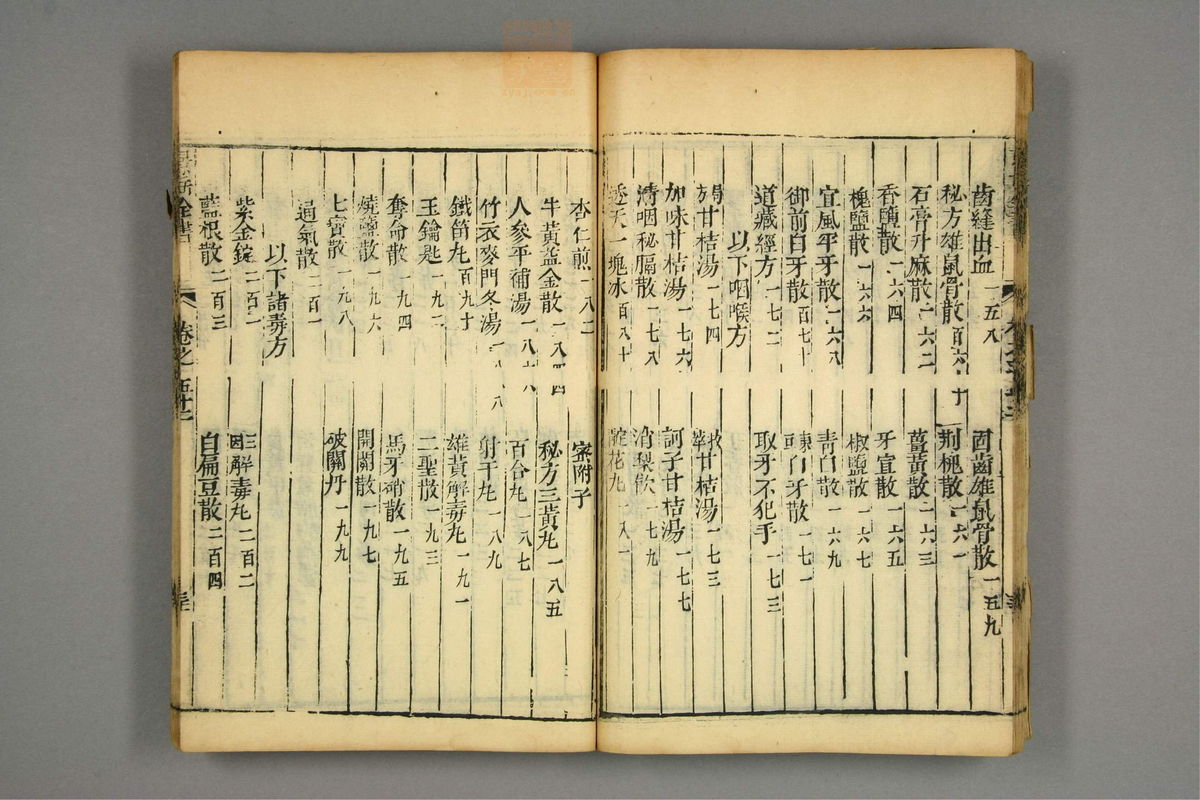 齒縫出血 一五八
固齒雄鼠骨散 一五九
秘方雄鼠骨散 百六十
荆槐散 一六一
石膏升麻散 一六二
薑黃散 一六三
香鹽散 一六四
牙宣散 一六五
槐鹽散 一六六
椒鹽散 一六七
宜風平牙散 一六八
青白散 一六九
御前白牙散 百七十
白牙散 一七一
道藏經方 一七二
取牙不犯手 一七三
以下咽喉方
甘桔湯 一七四
甘桔湯 一七三
加味甘桔湯 一七六
訶子甘桔湯 一七七
清咽秘膈散 一七八
消梨飲 一七九
透天一塊冰 百八十
花丸 一八一
杏仁煎 一八二
蜜附子
牛黃益金散 一八四
秘方三黃丸 一八五
人參平補湯 一八六
百合丸 一八七
竹衣麥門冬湯 一八八
射干丸 一八九
鐵笛丸 百九十
雄黃解毒丸 一九一
玉鑰匙 一九二
二聖散 一九三
奪命散 一九四
馬牙硝散 一九五
燒鹽散 一九六
開關散 一九七
七寶散 一九八
破關丹 一九九
過氣散 二百一
以下諸毒方
紫金錠 二百二
解毒丸 二百二
藍根散 二百三
白扁豆散 二百四
全書
卷之五十二